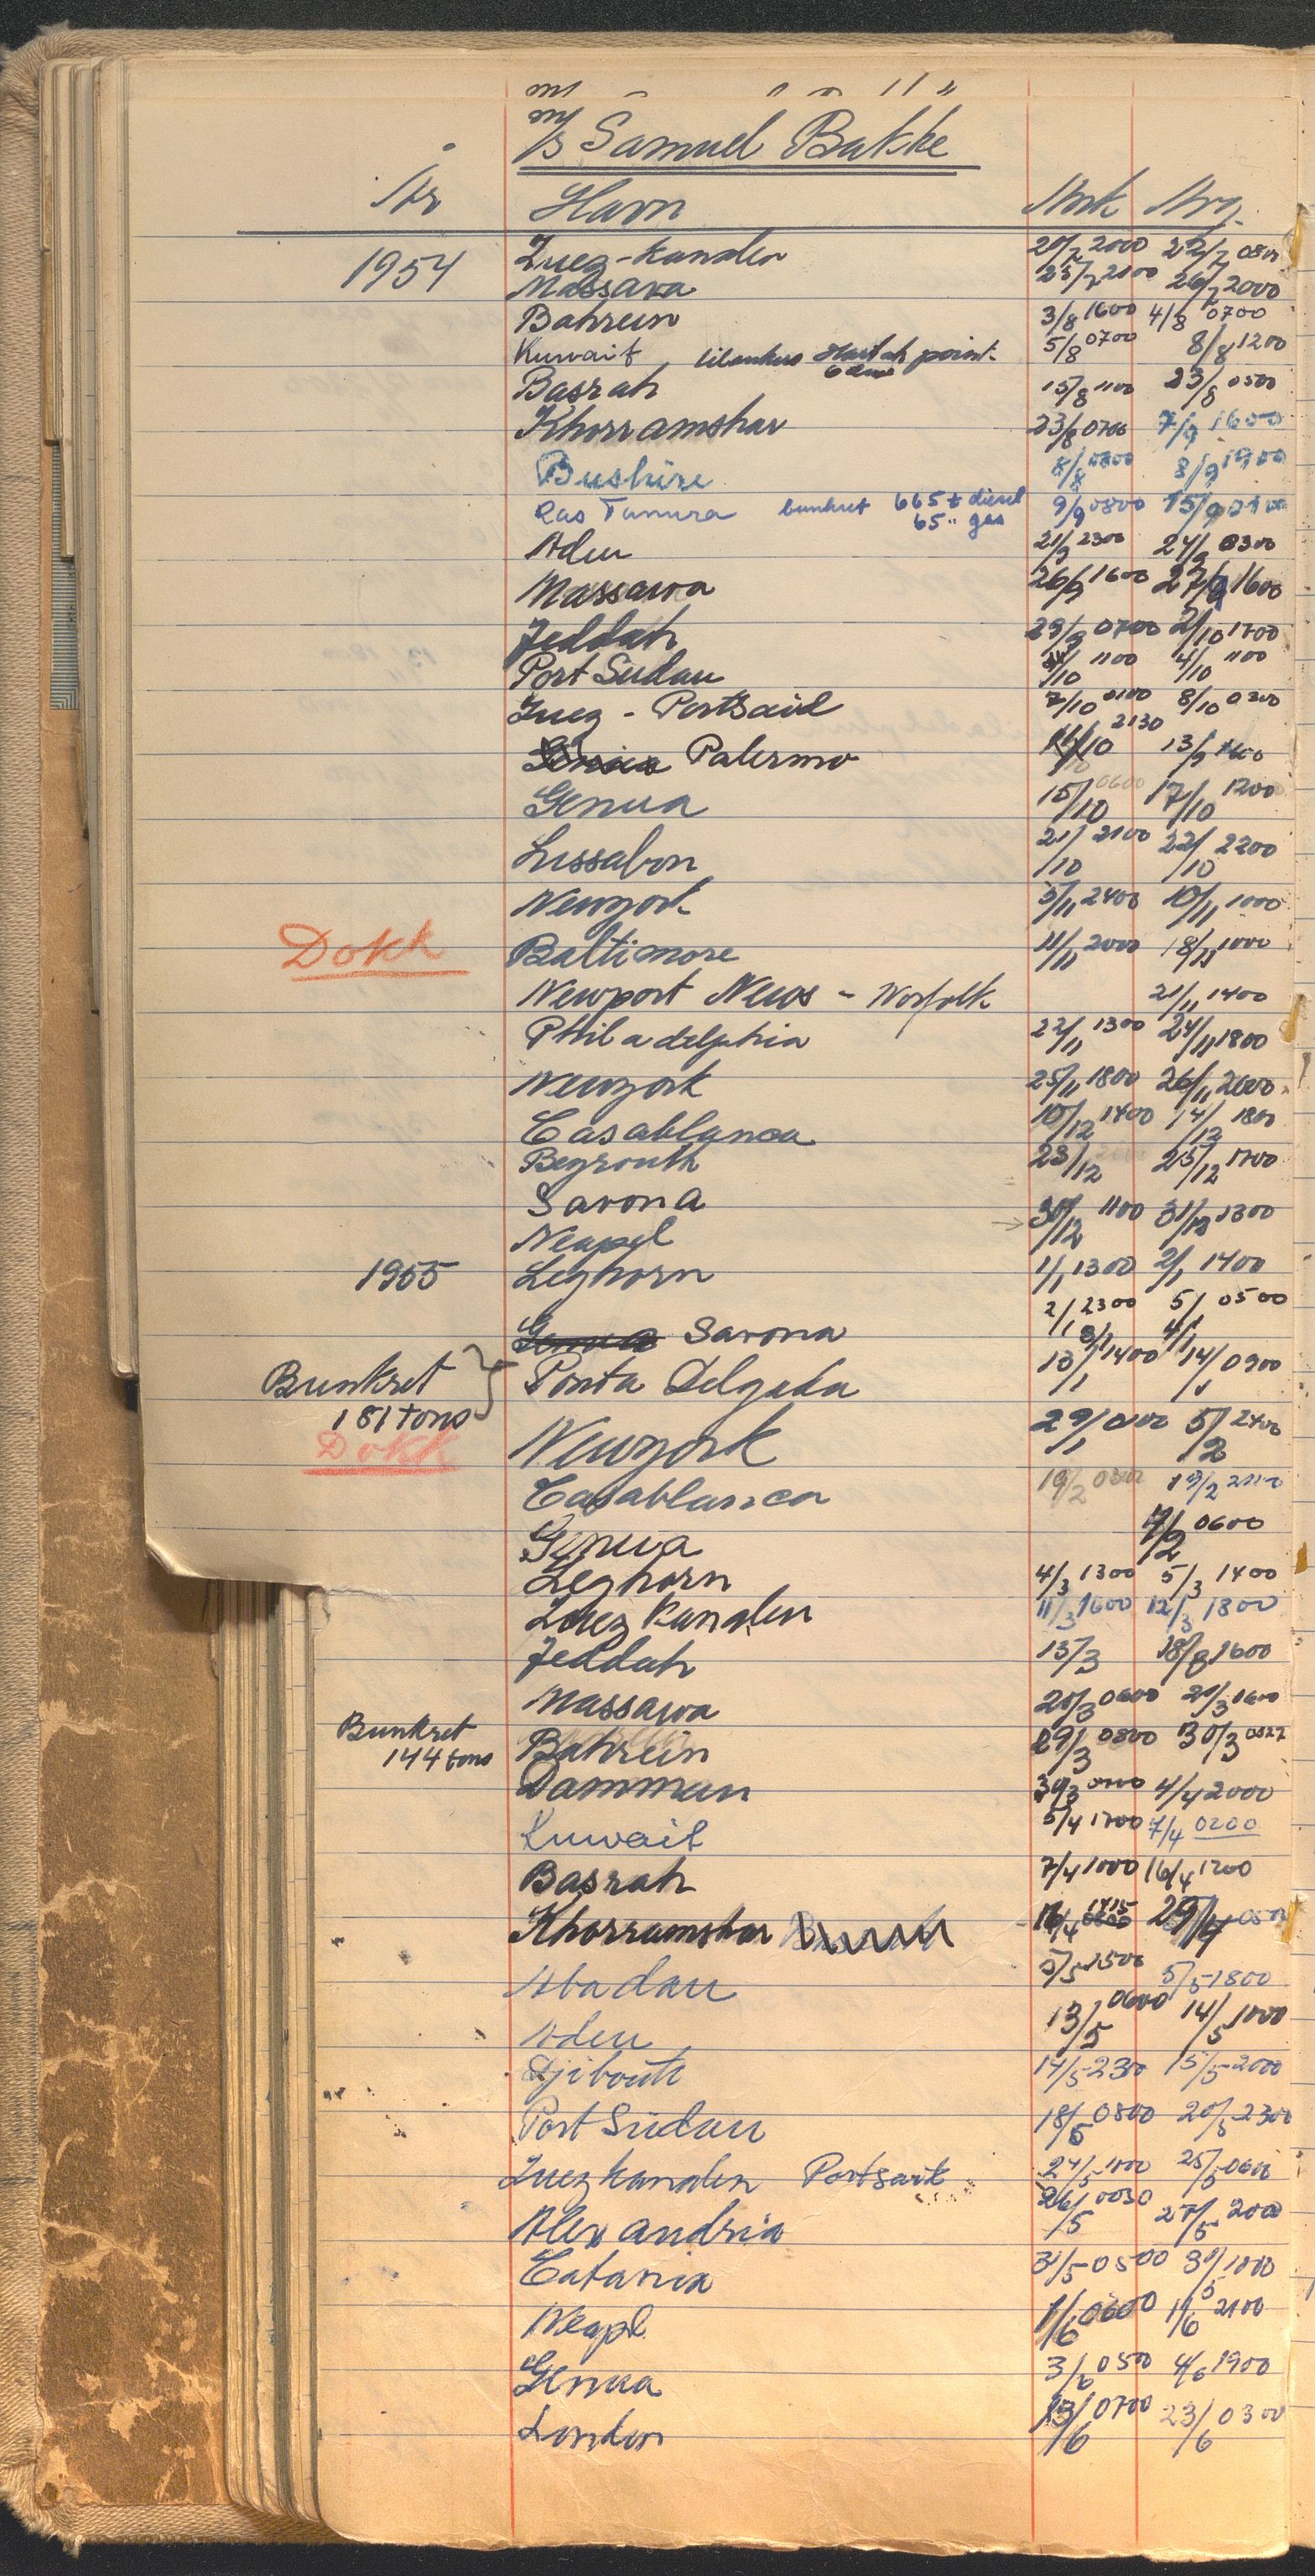 M/S Samuel Bakke
År Havn Ank Avg.
1954 Suez-kanalen 20/7 2000 22/7
Massava 25/7 2100 26/7 2000
Bahrein 3/8 1600 4/8 0700
Kuwait til ankers point 5/8 0700 8/8 1200
Basrah 15/8 1100 23/8 0500
Khorramshar 23/8 0700 7/9 1600
Bushire 8/8 0800 8/9 1900
Ras Tanura bunkret 665 t diesel 9/9 0800 15/9
65 " gas
Aden 21/9 2300 24/9 0300
Massawa 26/9 1600 27/9 1600
Jeddah 29/9 0700 2/10 1700
Port Sudan /10 1100 4/10 1100
Suez - Portsaid 7/10 0100 8/10 0200
Palermo 11/10 2130 13/9
Genua 15/10 0600 17/10 1200
Lissabon 21/10 2100 22/10 2200
Newyork 3/11 2400 10/11 1000
Dokk Baltimore 11/11 2000 18/11 1000
Newport News - Norfolk 21/11 1400
Philadelphia 22/11 1300 24/11 1800
Newyork 25/11 1800 26/11 2000
Casablanca 10/12 1400 14/12 1800
Beyrouth 23/12 25/12 1700
Savona
Neapel 30/12 1100 31/12 1300
1955 Leghorn 1/1 1300 2/1 1400
2/1 2300 5/1 0500
Genua Savona 3/1 4/1
Bunkret Ponta Delgada 13/1 1400 14/1 0900
181 tons
Dokk Newyork 29/1 0100 5/2 2400
Casablanca 19/2 0300 19/2
Genua 0600
Leghorn 4/3 1300 5/3 1400
Suez kanalen 11/3 1600 12/3 1800
Jeddah 15/3 18/3 1600
Massawa 20/3 0600 20/3 1600
Bunkret Bahrein 29/3 0800 30/3
144 tons
Damman 30/3 4/4 2000
Kuwait 5/4 1700 7/4 0200
Basrah 7/4 1000 16/4 1200
Khorramshar 16/4 1415 29/4
Abadan 5/5 1500 5/5 1800
Aden 13/5 0600 14/5 1000
Djibouti 14/5 2300 15/5 2000
Port Sudan 18/5 0800 20/5 2300
Suezkanalen Portsaid 24/5 1000 25/5 0600
Alexandria 26/5 0030 27/5 2000
Catania 31/5 0500 31/5 1800
Neapl 1/6 0600 1/6 2100
Genua 3/6 0500 4/6 1900
London 13/6 0700 23/6 0300